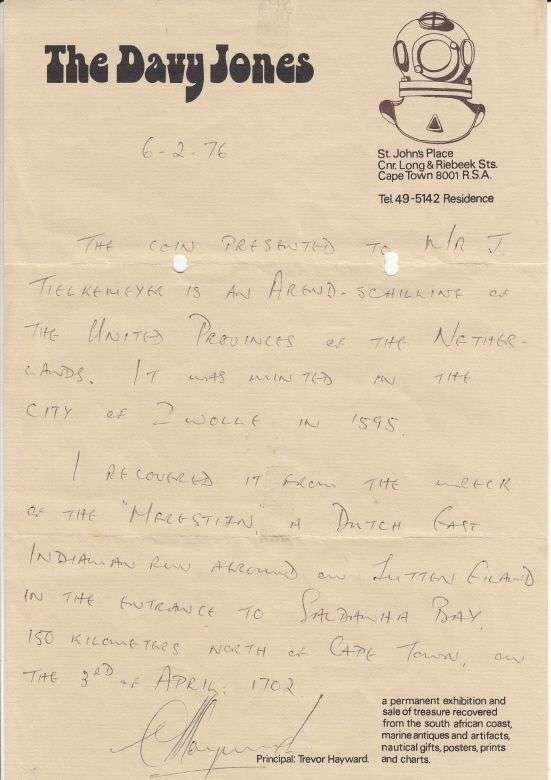 The Davy Jones
St. John's Place
Cnr. Long & Riebeek Sts.
Cape Town 8001 R.S.A.
Tel. 49-5142 Residence
6-2-76
THE COIN PRESENTED TO M/R J
TIELKEMEYER IS AN AREND-SCHILLING OF
THE UNITED PROVINCES OF THE NETHER-
LANDS. IT WAS MINTED IN THE
CITY OF ZWOLLE IN 1595.
I RECOVERED IT FROM THE WRECK
OF THE "MERESTIJN", A DUTCH EAST
INDIAMAN RUN AGROUND ON JUTTEN EILAND
IN THE ENTRANCE TO SALDANHA BAY,
150 KILOMETERS NORTH OF CAPE TOWN, ON
THE 3RD OF APRIL: 1702
Hayward
Principal: Trevor Hayward.
a permanent exhibition and
sale of treasure recovered
from the south african coast,
marine antiques and artifacts,
nautical gifts, posters, prints
and charts.